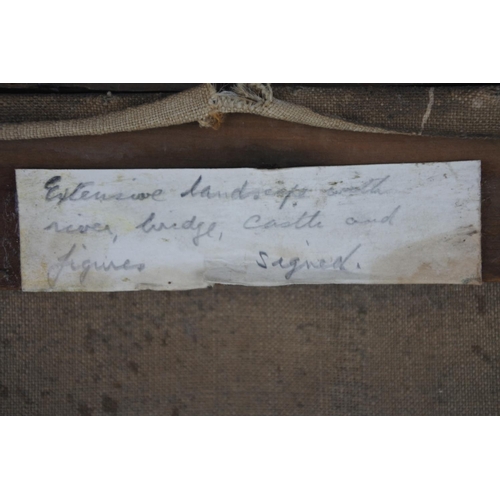 Extensive landscape with
river, bridge, castle and
figures signed.